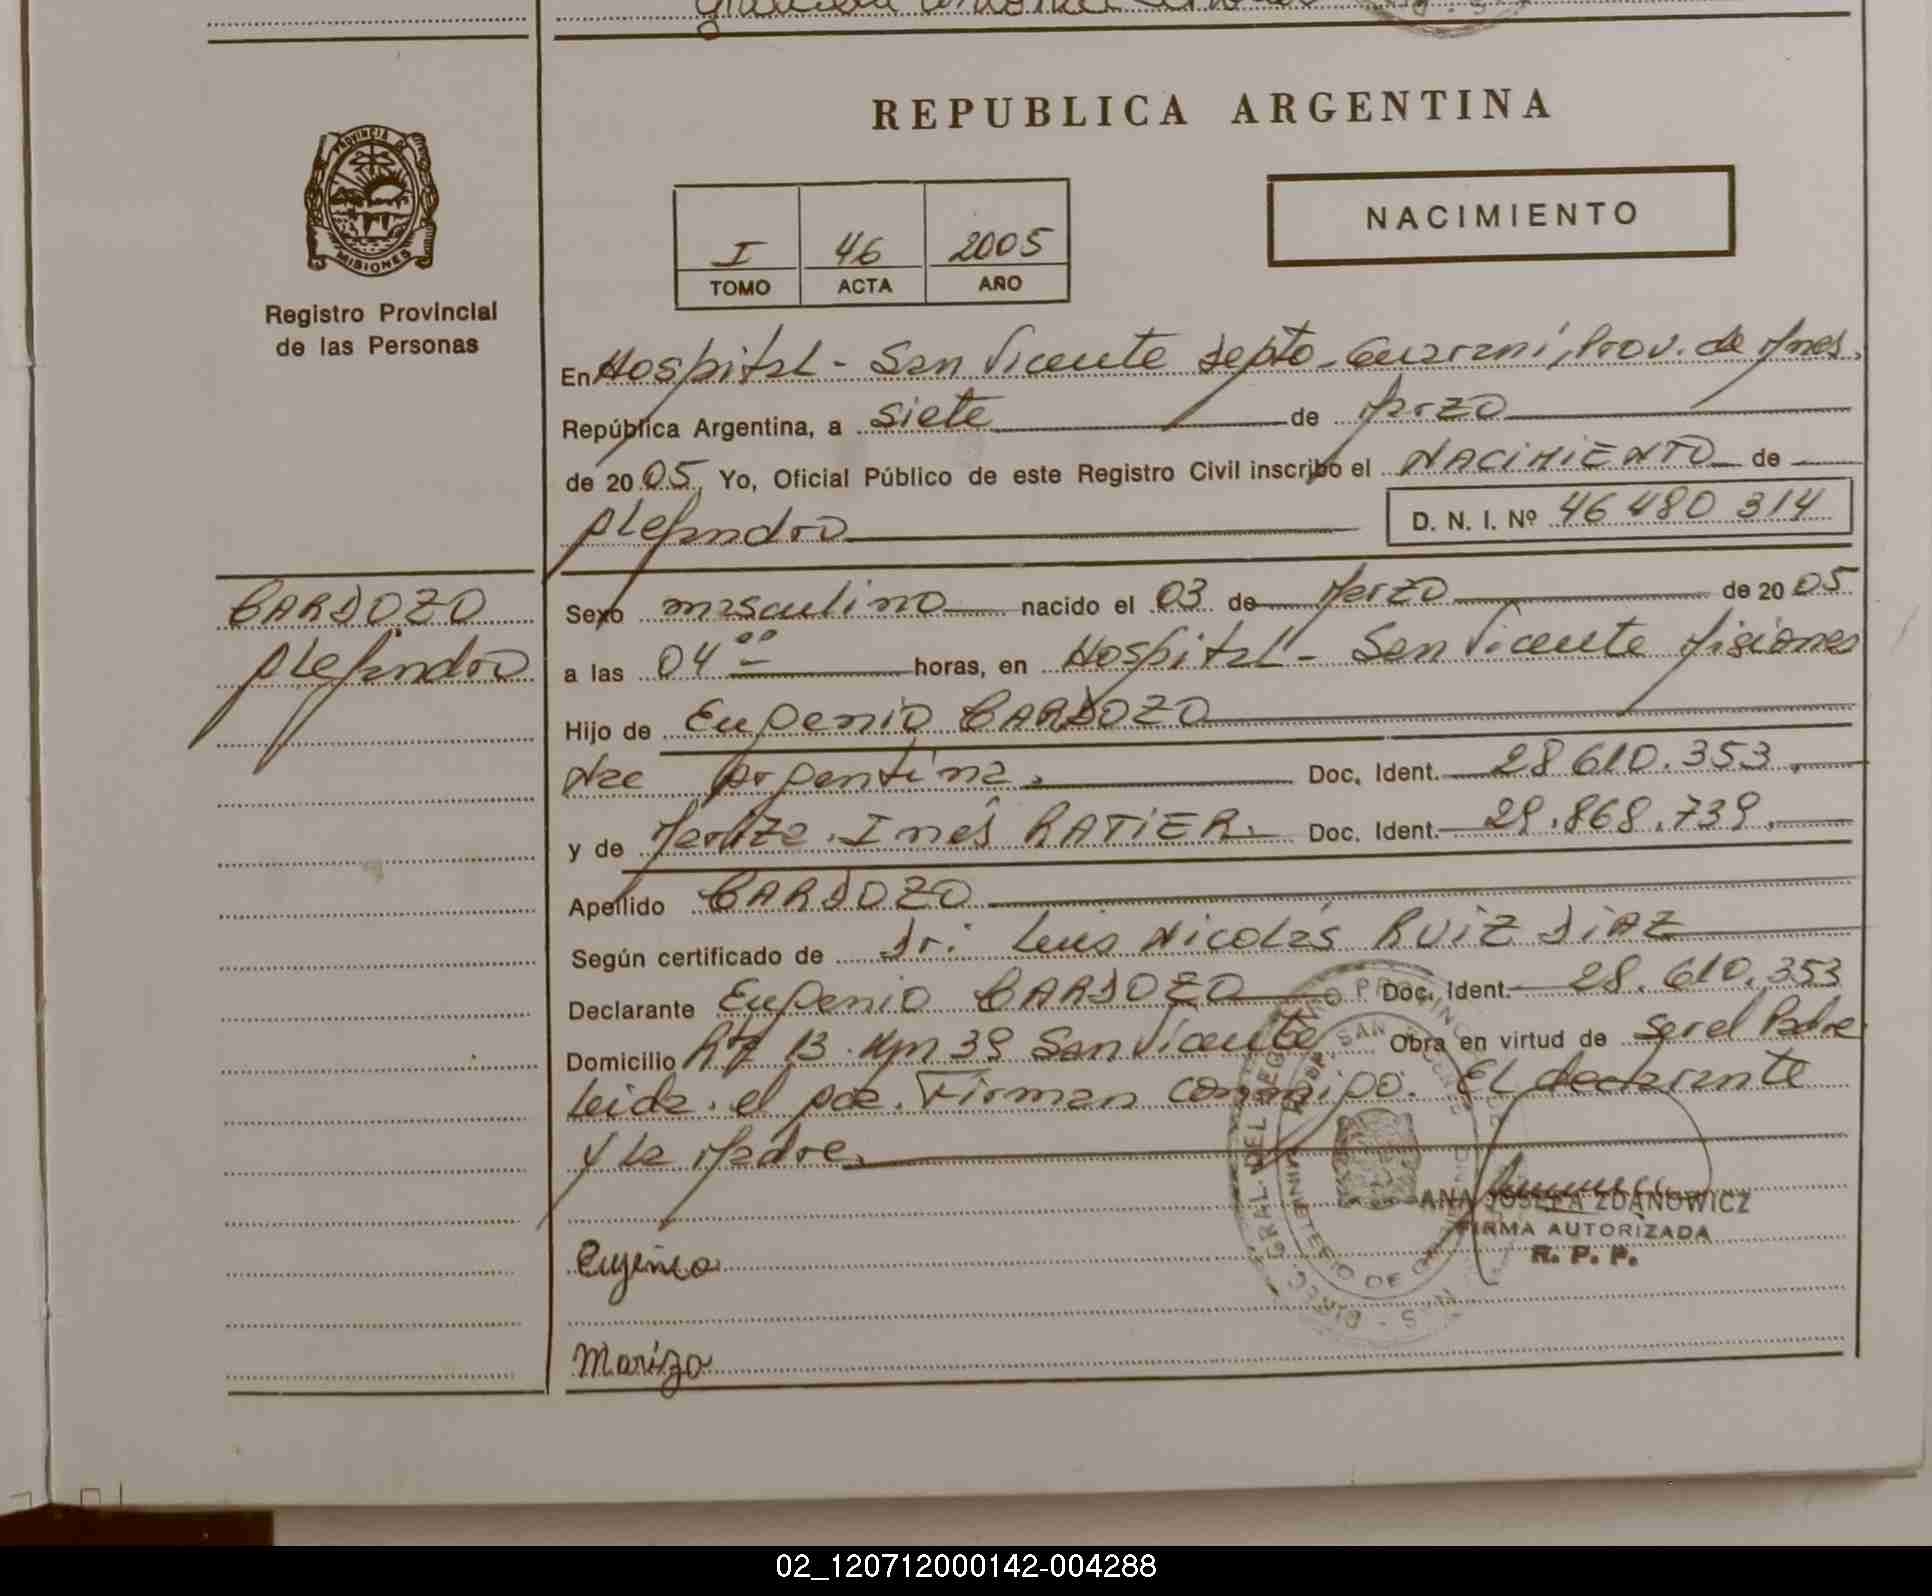 REPUBLICA ARGENTINA
PROVINCIA DE
MISIONES
Registro Provincial
de las Personas
I 46 2005
TOMO ACTA AÑO
NACIMIENTO
En Hospital - San Vicente Depto. Guaraní, Prov. de Mnes.
República Argentina, a siete de Marzo
de 2005, Yo, Oficial Público de este Registro Civil inscribo el NACIMIENTO de
Alejandro D. N. I. Nº 46 480 314
CARDOZO
Alejandro
Sexo masculino nacido el 03 de Marzo de 2005
a las 04 00 horas, en Hospital - San Vicente Misiones
Hijo de Eugenio CARDOZO
Nac Argentina. Doc. Ident. 28 610.353.
y de Mariza Inés RATIER. Doc. Ident. 29.868.739.
Apellido CARDOZO
Según certificado de Dr. Luis Nicolás RUIZ DIAZ
Declarante Eugenio CARDOZO Doc. Ident. 28.610.353
Domicilio Rta 13 Km 39 San Vicente Obra en virtud de ser el Padre
Leida el acta. Firman conmigo. El declarante
y la Madre.
ANA JOSEFA ZDANOWICZ
FIRMA AUTORIZADA
R. P. P.
Eugenio
Mariza
02_120712000142-004288